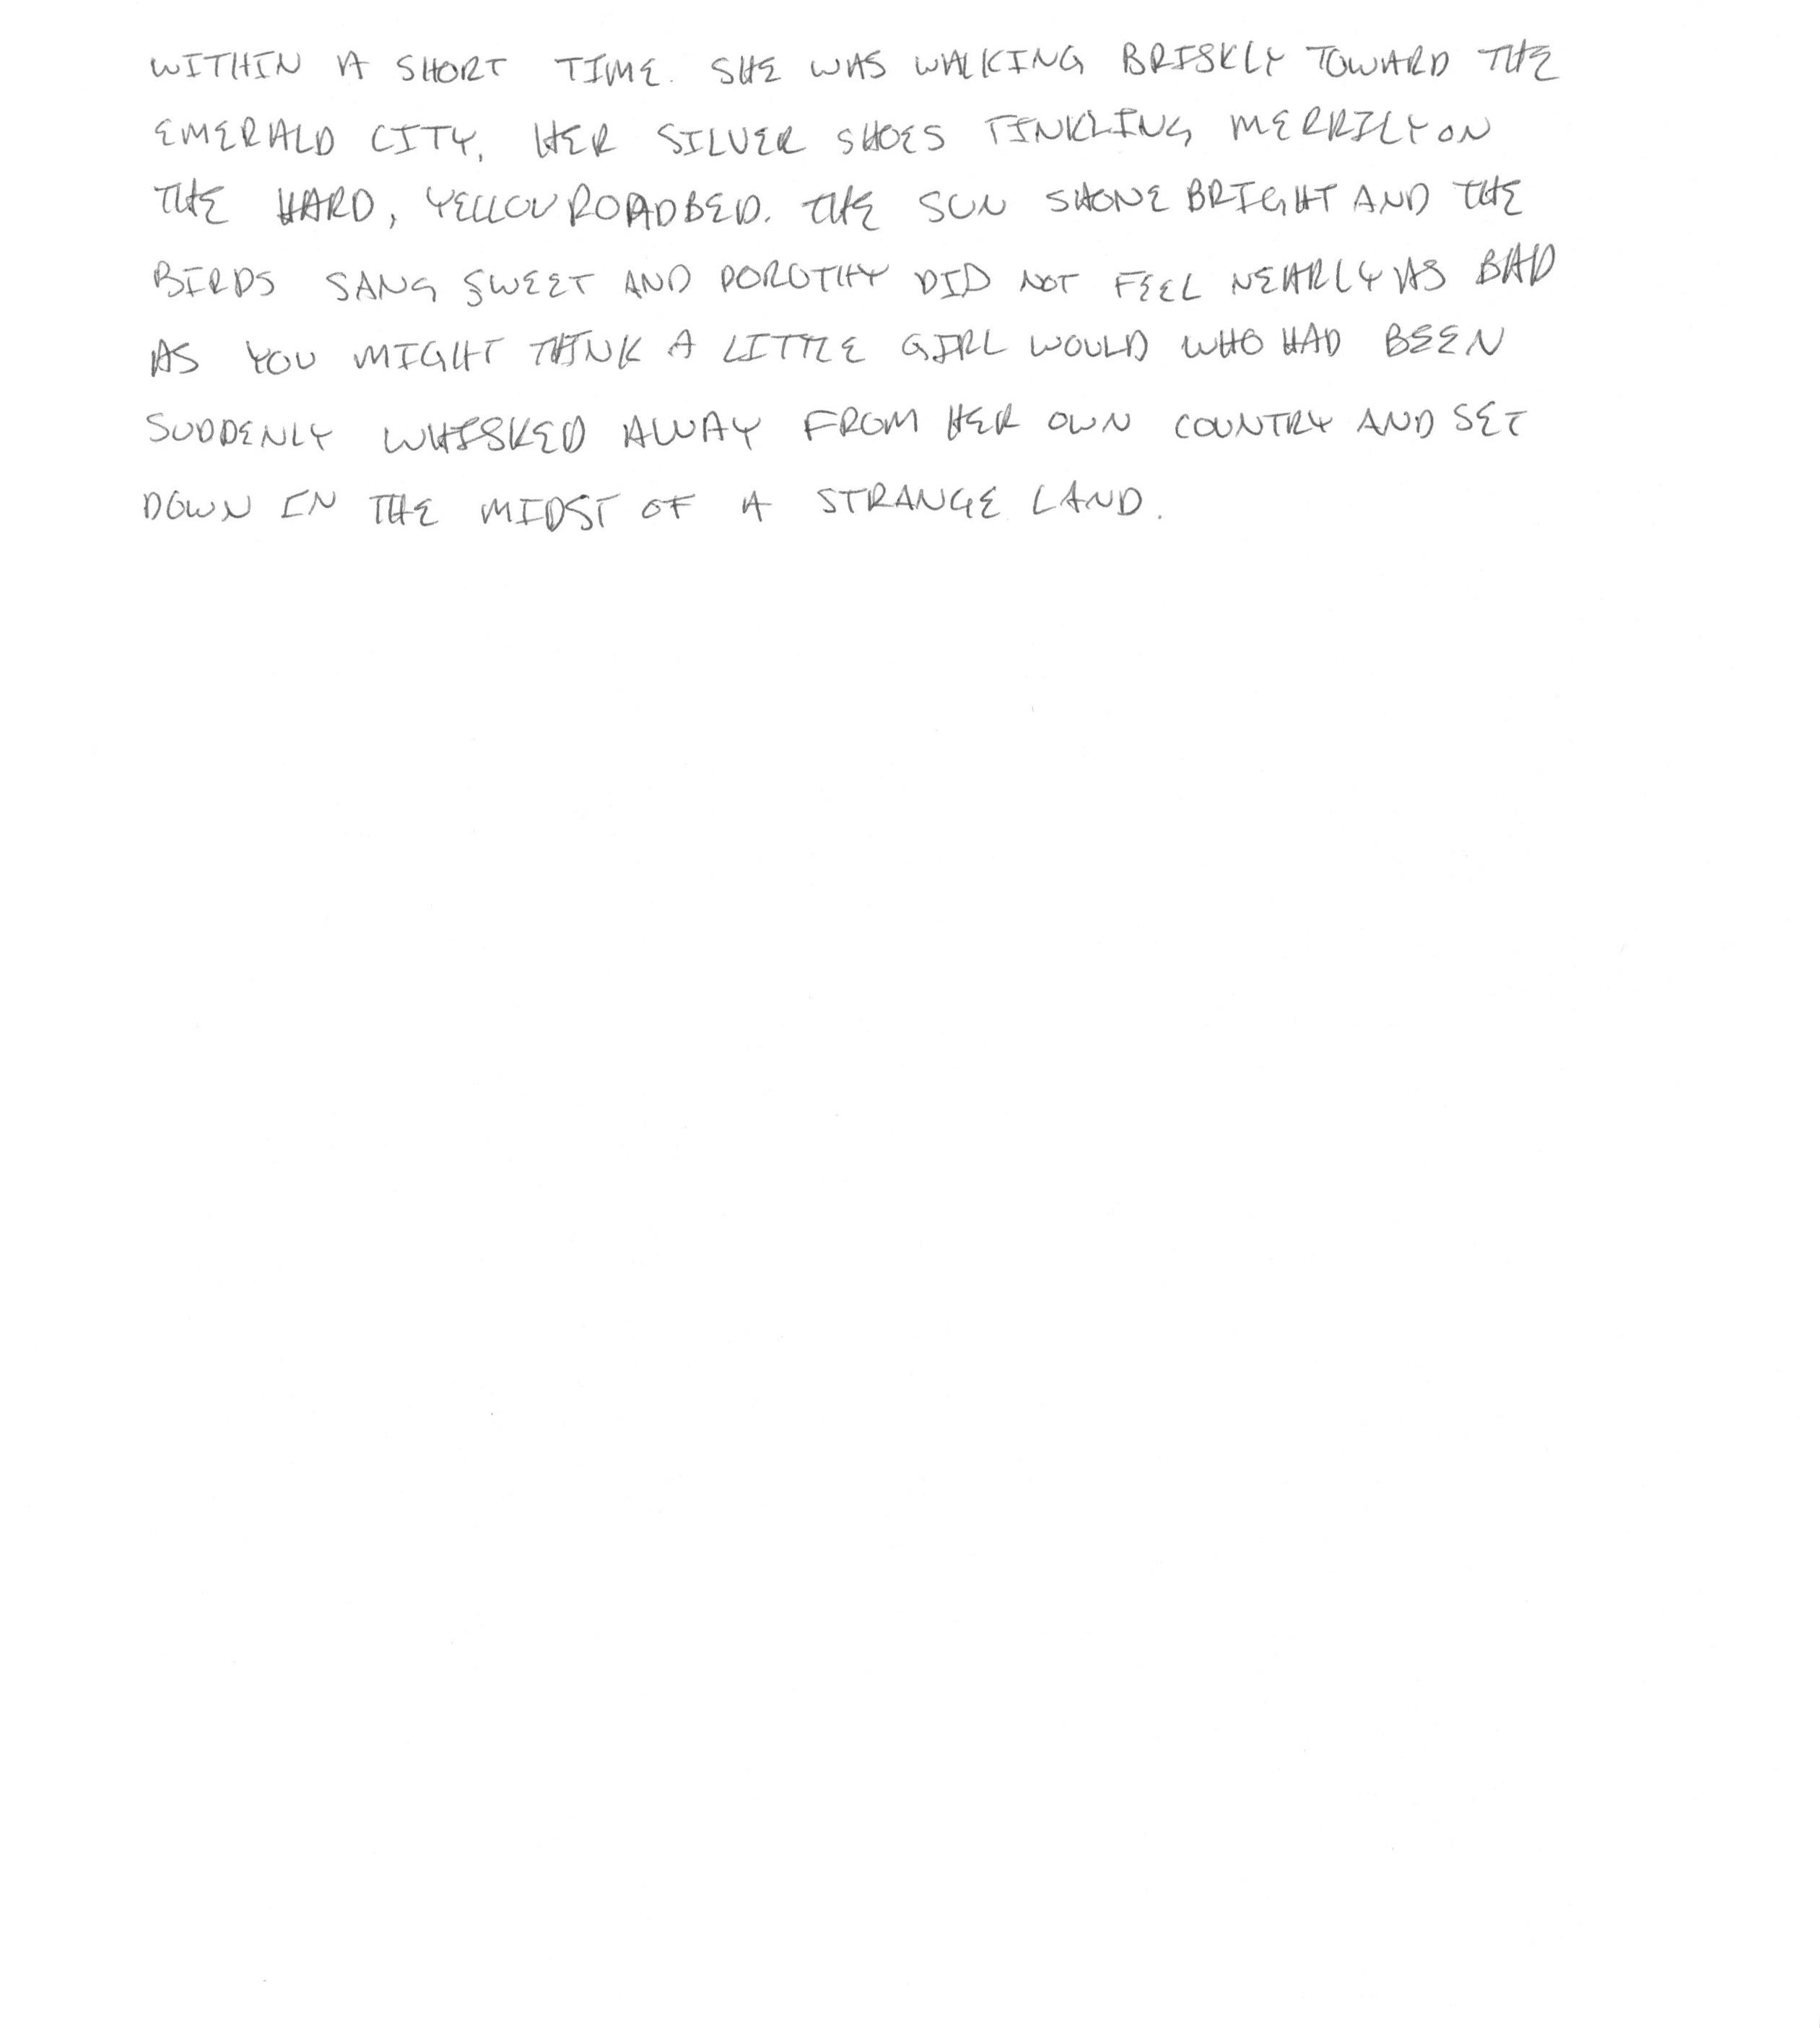 WITHIN A SHORT TIME. SHE WAS WALKING BRISKLY TOWARD THE
EMERALD CITY, HER SILVER SHOES TINKLING MERRILY ON
THE HARD, YELLOW ROADBED. THE SUN SHONE BRIGHT AND THE
BIRDS SANG SWEET AND DOROTHY DID NOT FEEL NEARLY AS BAD
AS YOU MIGHT THINK A LITTLE GIRL WOULD WHO HAD BEEN
SUDDENLY WHISKED AWAY FROM HER OWN COUNTRY AND SET
DOWN IN THE MIDST OF A STRANGE LAND.